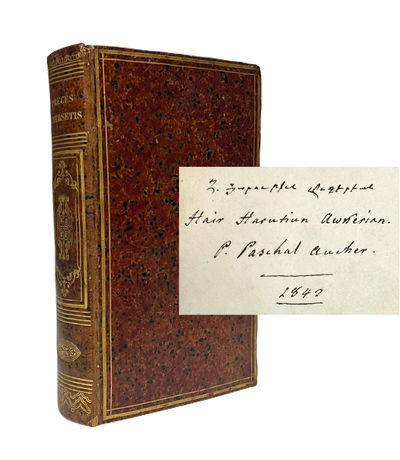 PRECES
NERSETIS
Հ. Յարութիւն Աւգերեան
Hair Harutiun Awkerian.
P. Paschal Aucher.